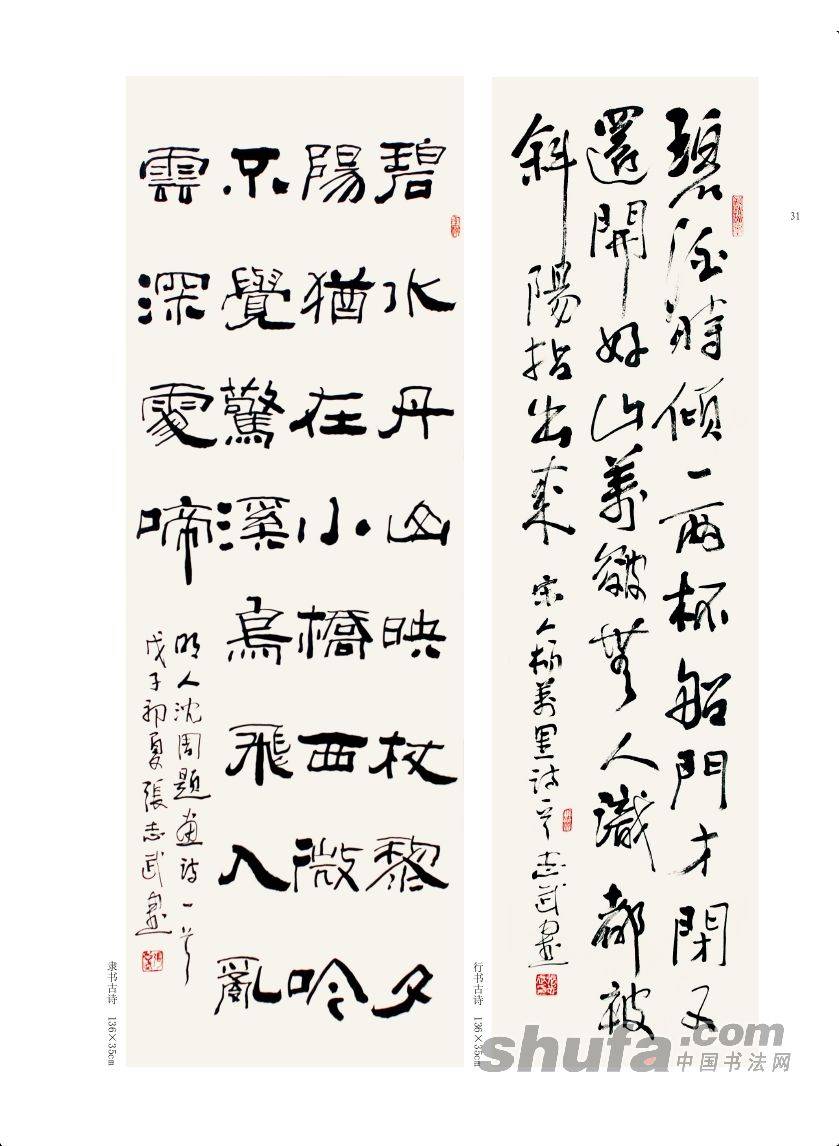 31
碧酒時傾一兩杯船門才閉又
還開好山萬皺無人識都被
斜陽拈出來
宋人楊萬里詩一首 志武書
行书古诗 136×35cm
碧水丹山映杖黎夕
陽猶在小橋西微吟
不覺驚溪鳥飛入亂
雲深處啼
明人沈周題畫詩一首
戊子初夏張志武書
隶书古诗 136×35cm
shufa.com
中国书法网